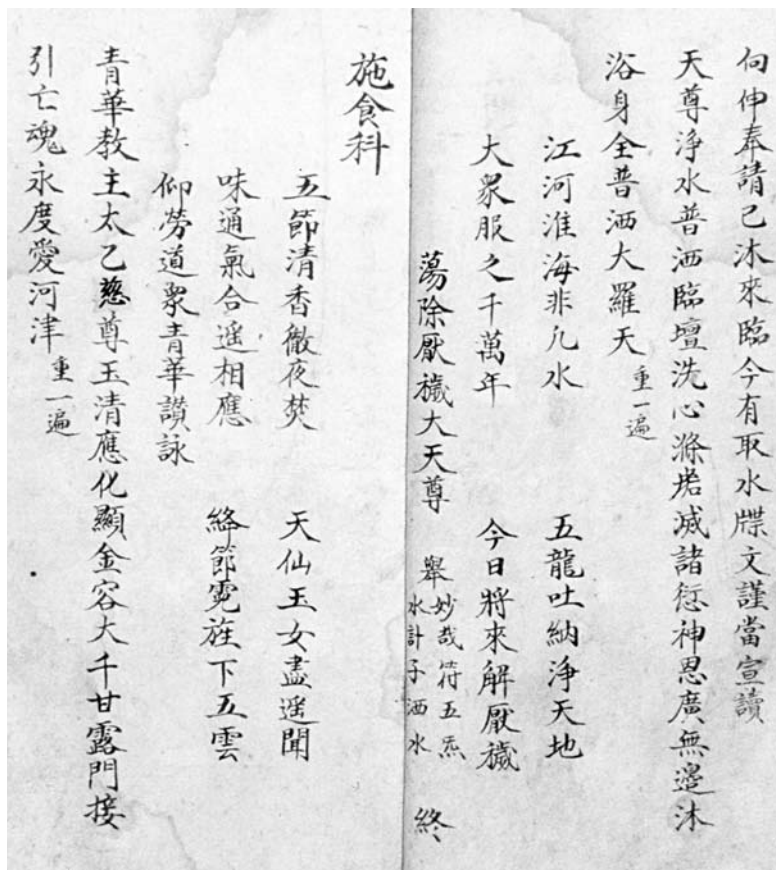 向伸奉請已沐來臨今有取水牒文謹當宣讀
天尊浄水普洒臨壇洗心滌垢滅諸愆神恩廣無邊沐
浴身全普洒大羅天 重一遍
江河淮海非凡水 五龍吐納浄天地
大衆服之千萬年 今日將來解厭穢
蕩除厭穢大天尊 舉 妙哉符五炁 水計子洒水 終
施食科
五節清香徹夜焚 天仙玉女盡遥聞
味通氣合遥相應 絳節霓旌下五雲
仰勞道衆青華讃詠
青華教主太乙慈尊玉清應化顯金容大千甘露門接
引亡魂永度愛河津 重一遍